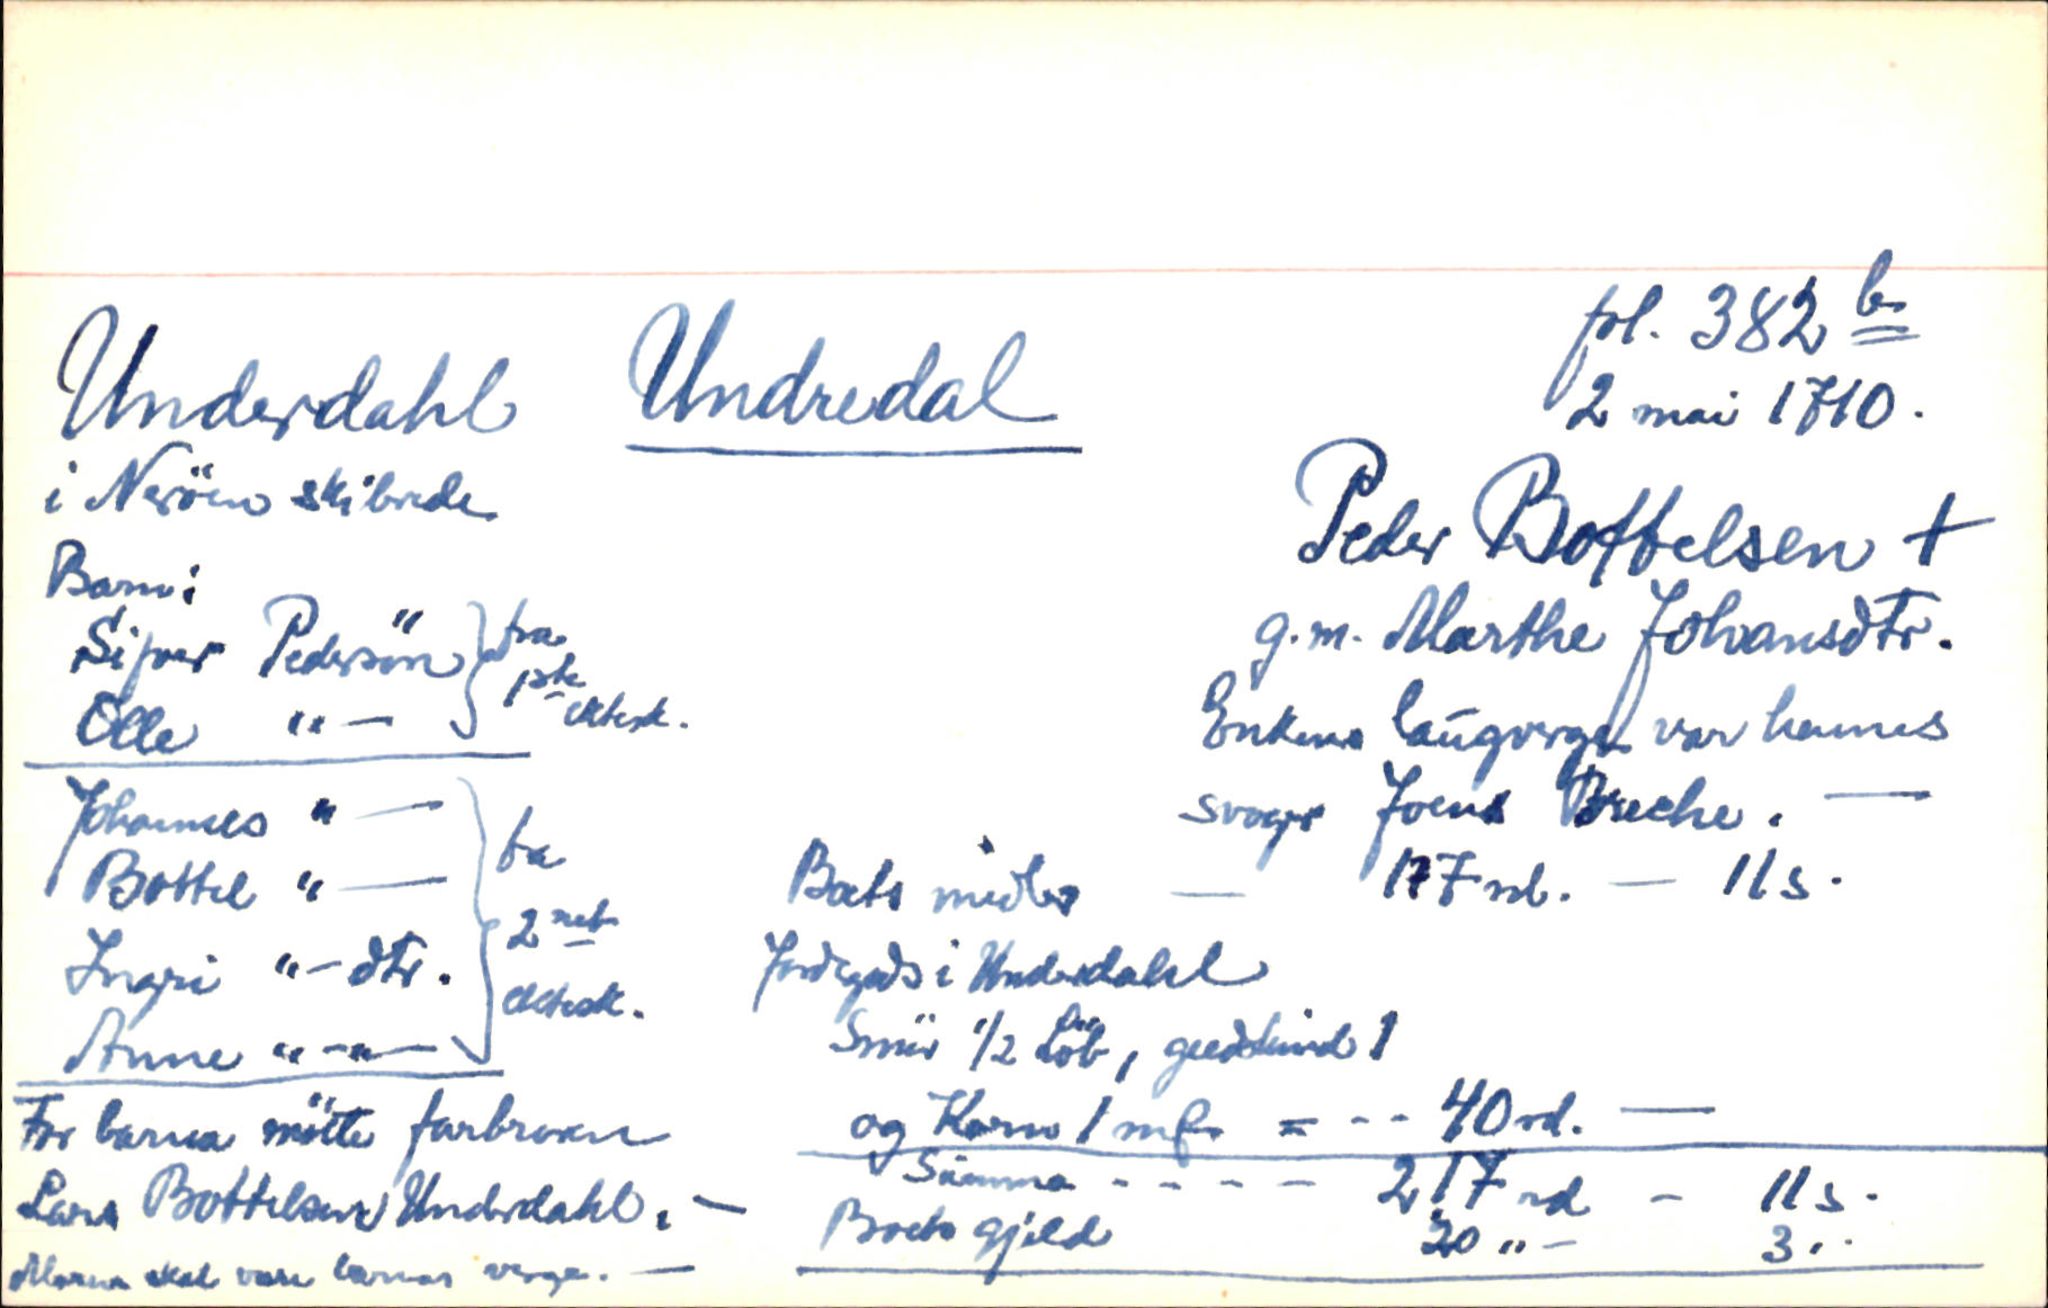 fol. 382 b
Underdahl Undredal
2 mai 1710.
i Neröen skibrede
Peder Bottelsen +
g.m. Marthe Johansdtr.
Enkens laugverge var hennes
svoger Joens Breche. —
Barn:
Sifver Pedersön } fra
Olle " — 1ste ektesk.
Johannes " —
Bottel " — } fra
Ingri " — dtr. 2net
Anne " — " — ektesk.
For barna mötte farbroren
Lars Bottelsen Underdahl. —
Moren skal være barnas verge. —
Boets midler — 177 rd. — 11 s.
Jordegods i Underdahl
Smör 1/2 Löb, geedskind 1
og Korn 1 mæ = - - 40 rd. —
Summa - - - - 217 rd — 11 s.
Boets gjeld 20 " — 3 "